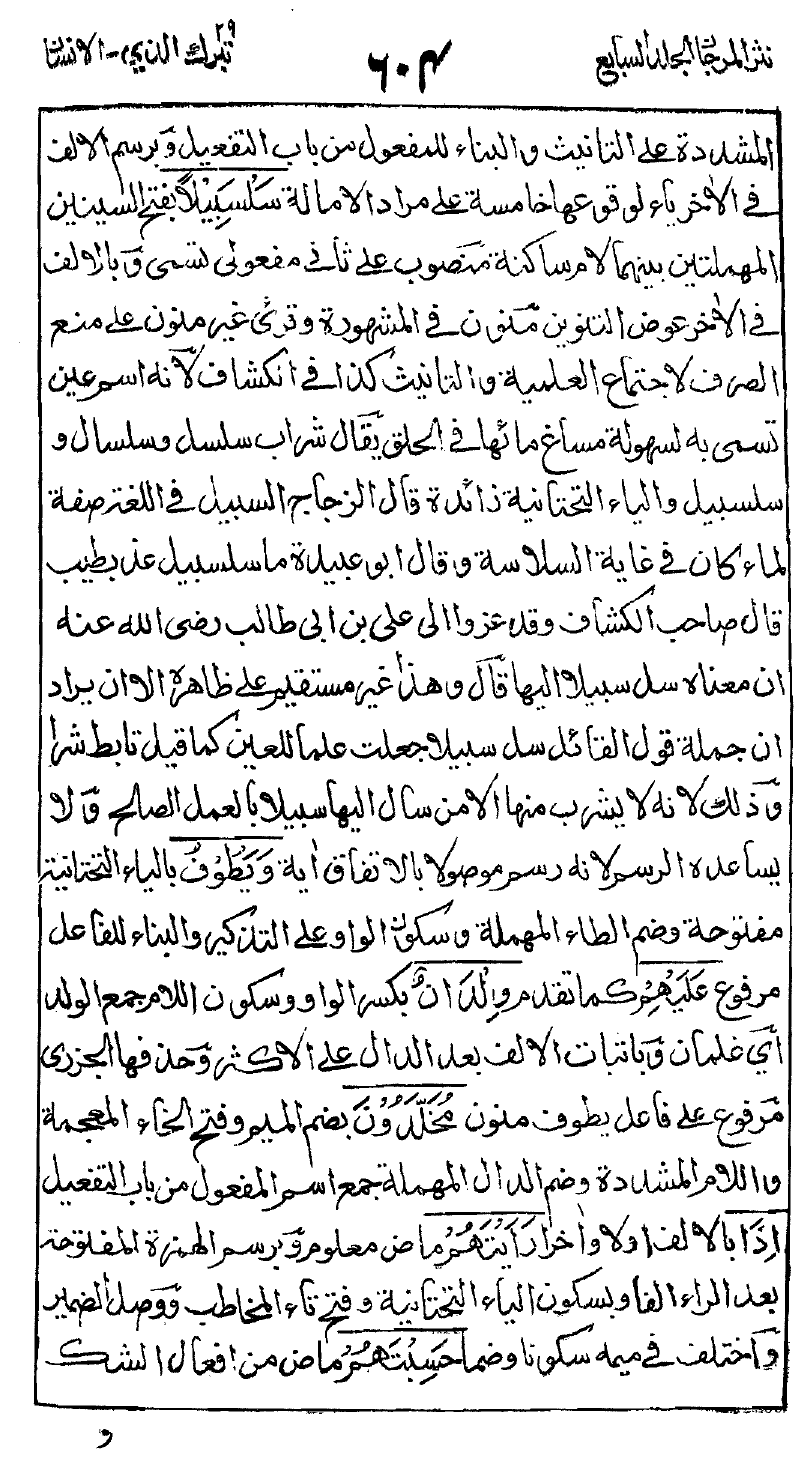 نثر المرجان الجلد السابع
٦٠٣
تبرك الذي ٢٩ - الانسان
المشددة على التانيث والبناء للمفعول من باب التفعيل وبرسم الالف
فى الاٰخر ياء لوقوعها خامسة على مراد الامالة سَلْسَبِيْلًا بفتح السينين
المهملتين بينهما لام ساكنة منصوب على ثانى مفعولى تسمى وبالالف
فى الاٰخر عوض التنوين منون فى المشهورة وقرئ غير منون على منع
الصرف لاجتماع العلمية والتانيث كذا فى الكشاف لانه اسم عين
تسمى به لسهولة مساغ مائها فى الحلق يقال شراب سلسل وسلسال و
سلسبيل والياء التحتانية زائدة قال الزجاج السبيل فى اللغة صفة
لماء كان فى غاية السلاسة وقال ابو عبيدة ما سلسبيل عذب طيب
قال صاحب الكشاف وقد عزوا الى على بن ابى طالب رضى الله عنه
ان معناه سل سبيلا اليها قال وهذا غير مستقيم على ظاهره الا ان يراد
ان جملة قول القائل سل سبيلا جعلت علما للعين كما قيل تابط شرا
وذلك لانه لا يشرب منها الا من سال اليها سبيلا بالعمل الصالح ولا
يساعده الرسم لانه رسم موصولا بالاتفاق اية وَيَطُوْفُ بالياء التحتانية
مفتوحة وضم الطاء المهملة وسكون الواو على التذكير والبناء للفاعل
مرفوع عَلَيْهِمْ كما تقدم وِلْدَانٌ بكسر الواو وسكون اللام جمع الولد
اى غلمان وباثبات الالف بعد الدال على الاكثر وحذفها الجزرى
مرفوع على فاعل يطوف منون مُخَلَّدُوْنَ بضم الميم وفتح الخاء المعجمة
واللام المشددة وضم الدال المهملة جمع اسم المفعول من باب التفعيل
اِذَا بالالف اولا واٰخرا رَاَيْتَهُمْ ماض معلوم وبرسم الهمزة المفتوحة
بعد الراء الفا وبسكون الياء التحتانية وفتح تاء المخاطب ووصل الضمير
واختلف فى ميمه سكونا وضما حَسِبْتَهُمْ ماض من افعال الشك
و